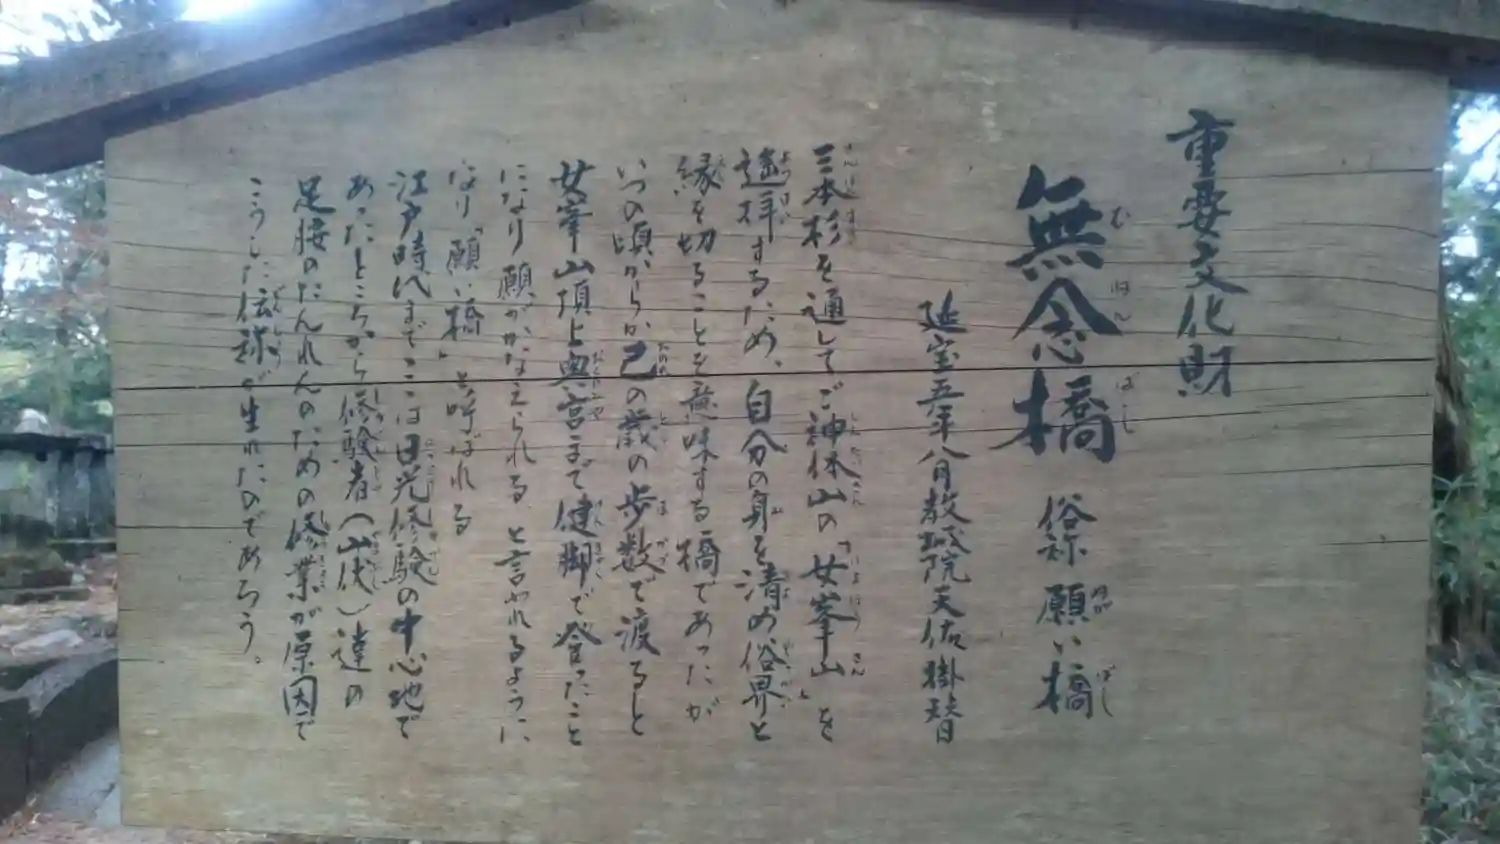 重要文化財
無念橋 俗称 願い橋
むねんばし ねが ばし
延宝五年八月教城院天佑掛替
三本杉を通してご神体山の「女峯山」を
遙拝するため、自分の身を清め俗界と
縁を切ることを意味する橋であったが
いつの頃からか己の歳の歩数で渡ると
女峯山頂上奥宮まで健脚で登ったこと
になり願がかなえられる、と言われるように
なり「願い橋」と呼ばれる
江戸時代までここは日光修験の中心地で
あったところから修験者(山伏)達の
足腰のたんれんのための修業が原因で
こうした伝称が生れたのであろう。